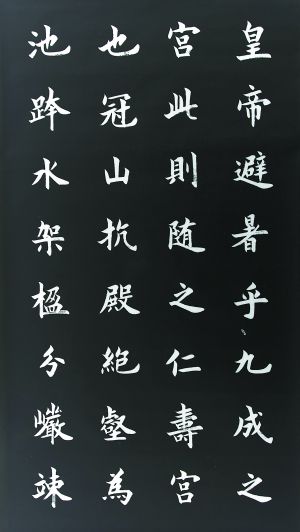 皇帝避暑乎九成之
宮此則随之仁壽宮
也冠山抗殿絶壑為
池跨水架楹分巗竦